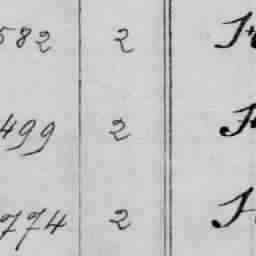 582 2
499 2
774 2